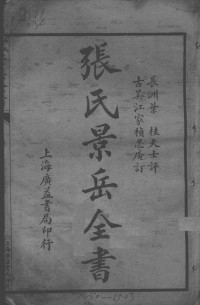 長洲葉桂天士評
古吳江家楨蔭庵訂
張氏景岳全書
上海廣益書局印行